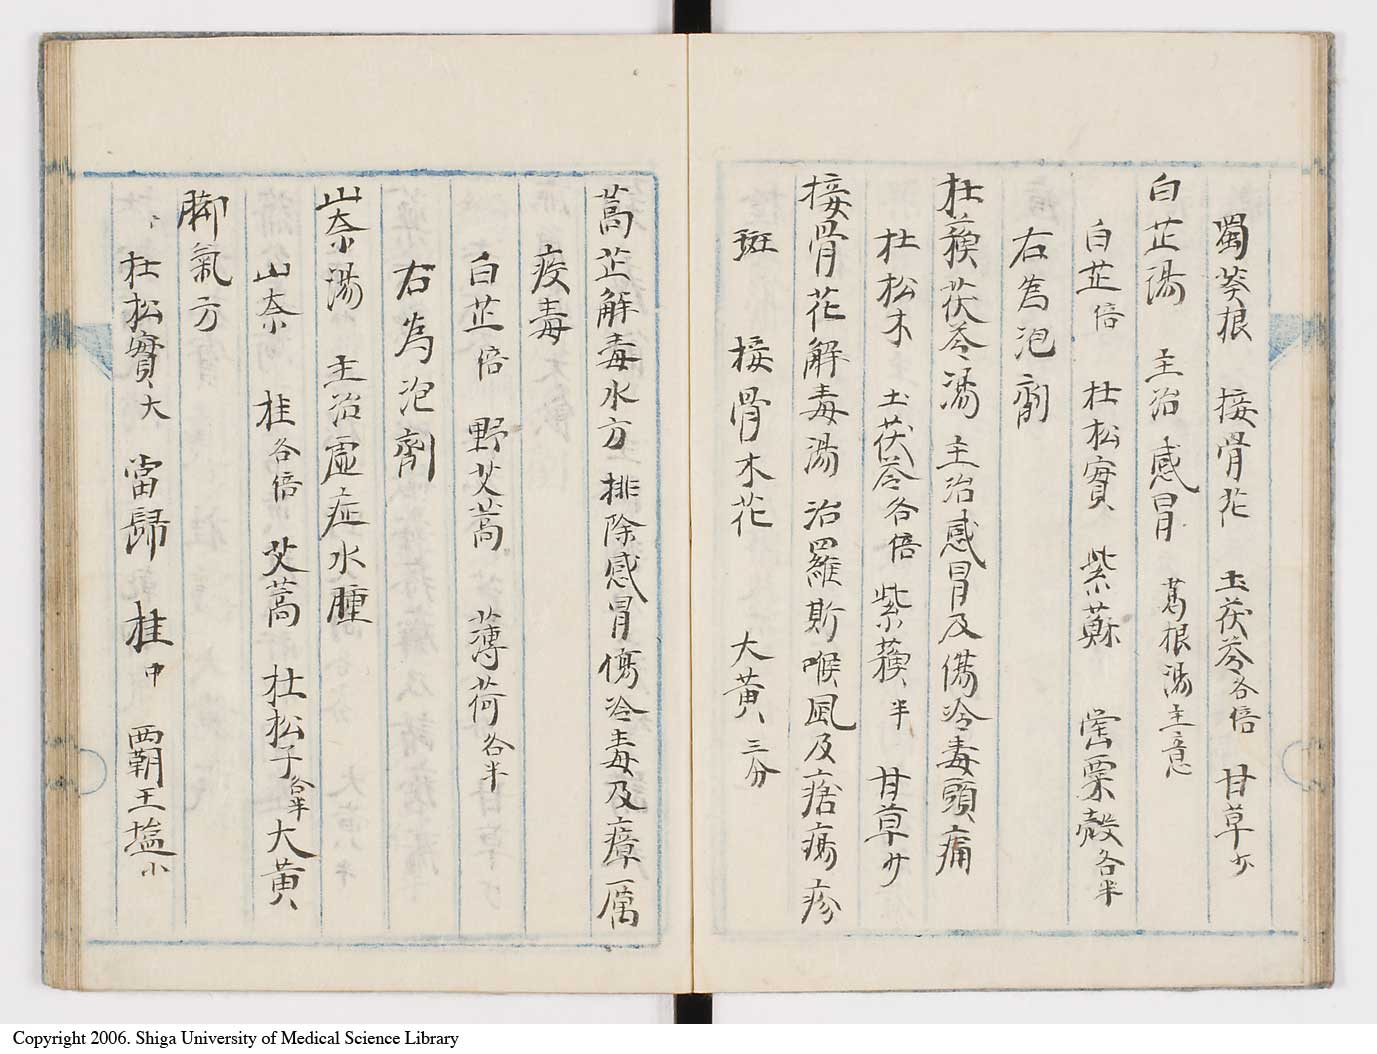 蜀葵根 接骨花 土茯苓各倍 甘草少
白芷湯 主治感冒 葛根湯主意
白芷倍 杜松實 紫蘇 罌粟殻各半
右為泡劑
杜蘓茯苓湯 主治感冒及傷冷毒頭痛
杜松木 土茯苓各倍 紫蘓半 甘草少
接骨花解毒湯 治羅斯喉風及痞瘍疹
斑 接骨木花 大黄三分
蒿芷解毒水方 排除感冒傷冷毒及瘴厲
疫毒
白芷倍 野艾蒿 薄荷各半
右為泡劑
山奈湯 主治虚症水腫
山奈 桂各倍 艾蒿 杜松子各半 大黄
脚氣方
杜松實大 當歸 桂中 覇王塩小
Copyright 2006. Shiga University of Medical Science Library